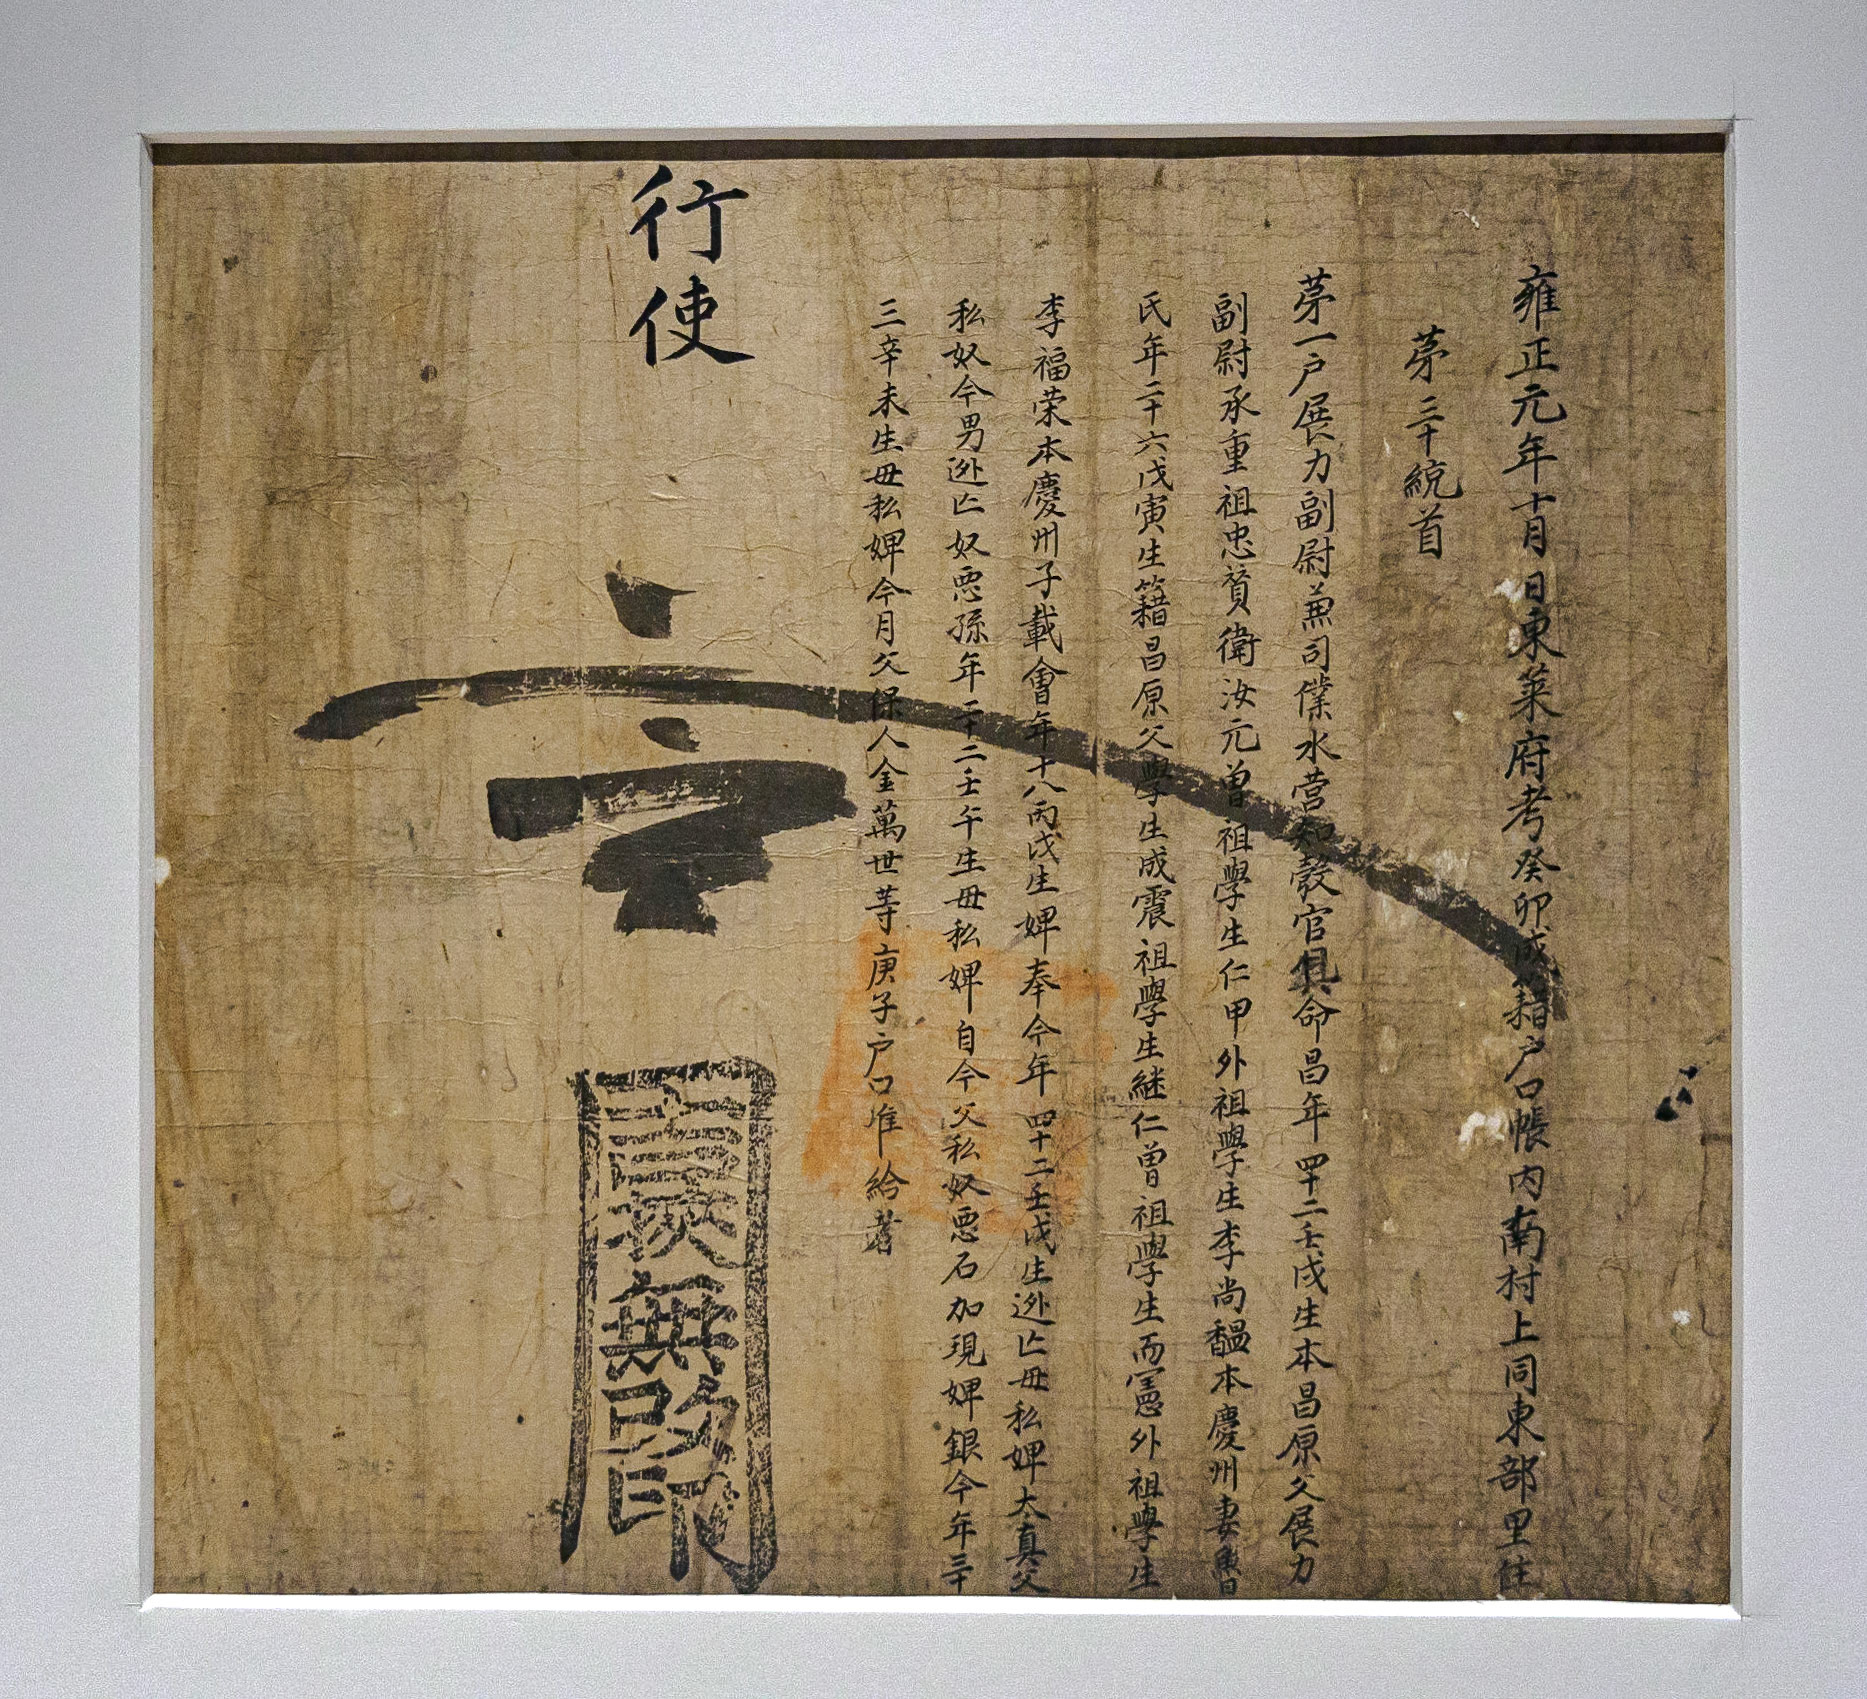 雍正元年十月日東萊府考癸卯成籍戶口帳內南村上同東部里住
茅三十統首
茅一戶展力副尉兼司僕水營知彀官具命昌年四十二壬戌生本昌原父展力
副尉承重祖忠贊衛汝元曾祖學生仁甲外祖學生李尚馧本慶州妻魯
氏年二十六戊寅生籍昌原父學生成震祖學生継仁曾祖學生而憲外祖學生
李福荣本慶州子載會年十八丙戌生婢奉今年四十二壬戌生迯亡母私婢太真父
私奴今男迯亡奴惡孫年二十二壬午生母私婢自今父私奴惡石加現婢銀今年三十
三辛未生母私婢今月父保人金萬世等庚子戶口准給者
行使
周挾無改印